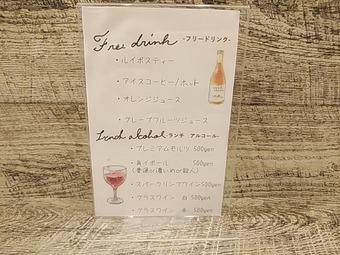 Free drink -フリードリンク-
・ルイボスティー
・アイスコーヒー/ホット
・オレンジジュース
・グレープフルーツジュース
Lunch alcohol ランチ アルコール-
・プレミアムモルツ 500yen
・ハイボール 500yen
・スパークリングワイン500yen
・グラスワイン 白 500yen
・グラスワイン 赤 500yen